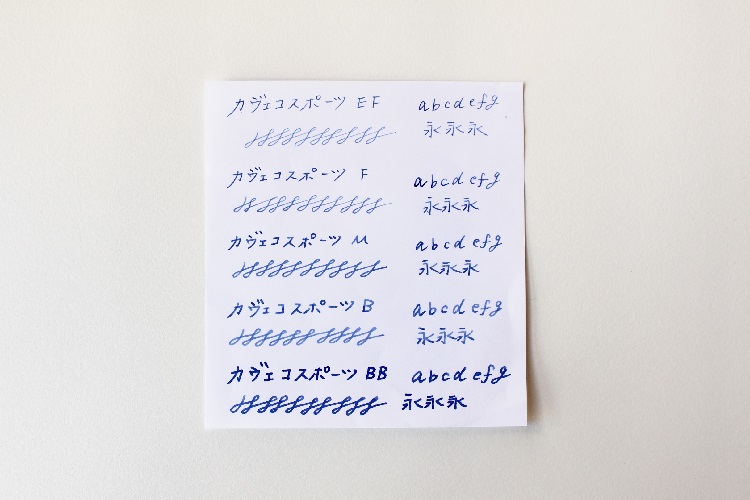 カヴェコスポーツ EF abcdefg
永永永
カヴェコスポーツ F abcdefg
永永永
カヴェコスポーツ M abcdefg
永永永
カヴェコスポーツ B abcdefg
永永永
カヴェコスポーツ BB abcdefg
永永永